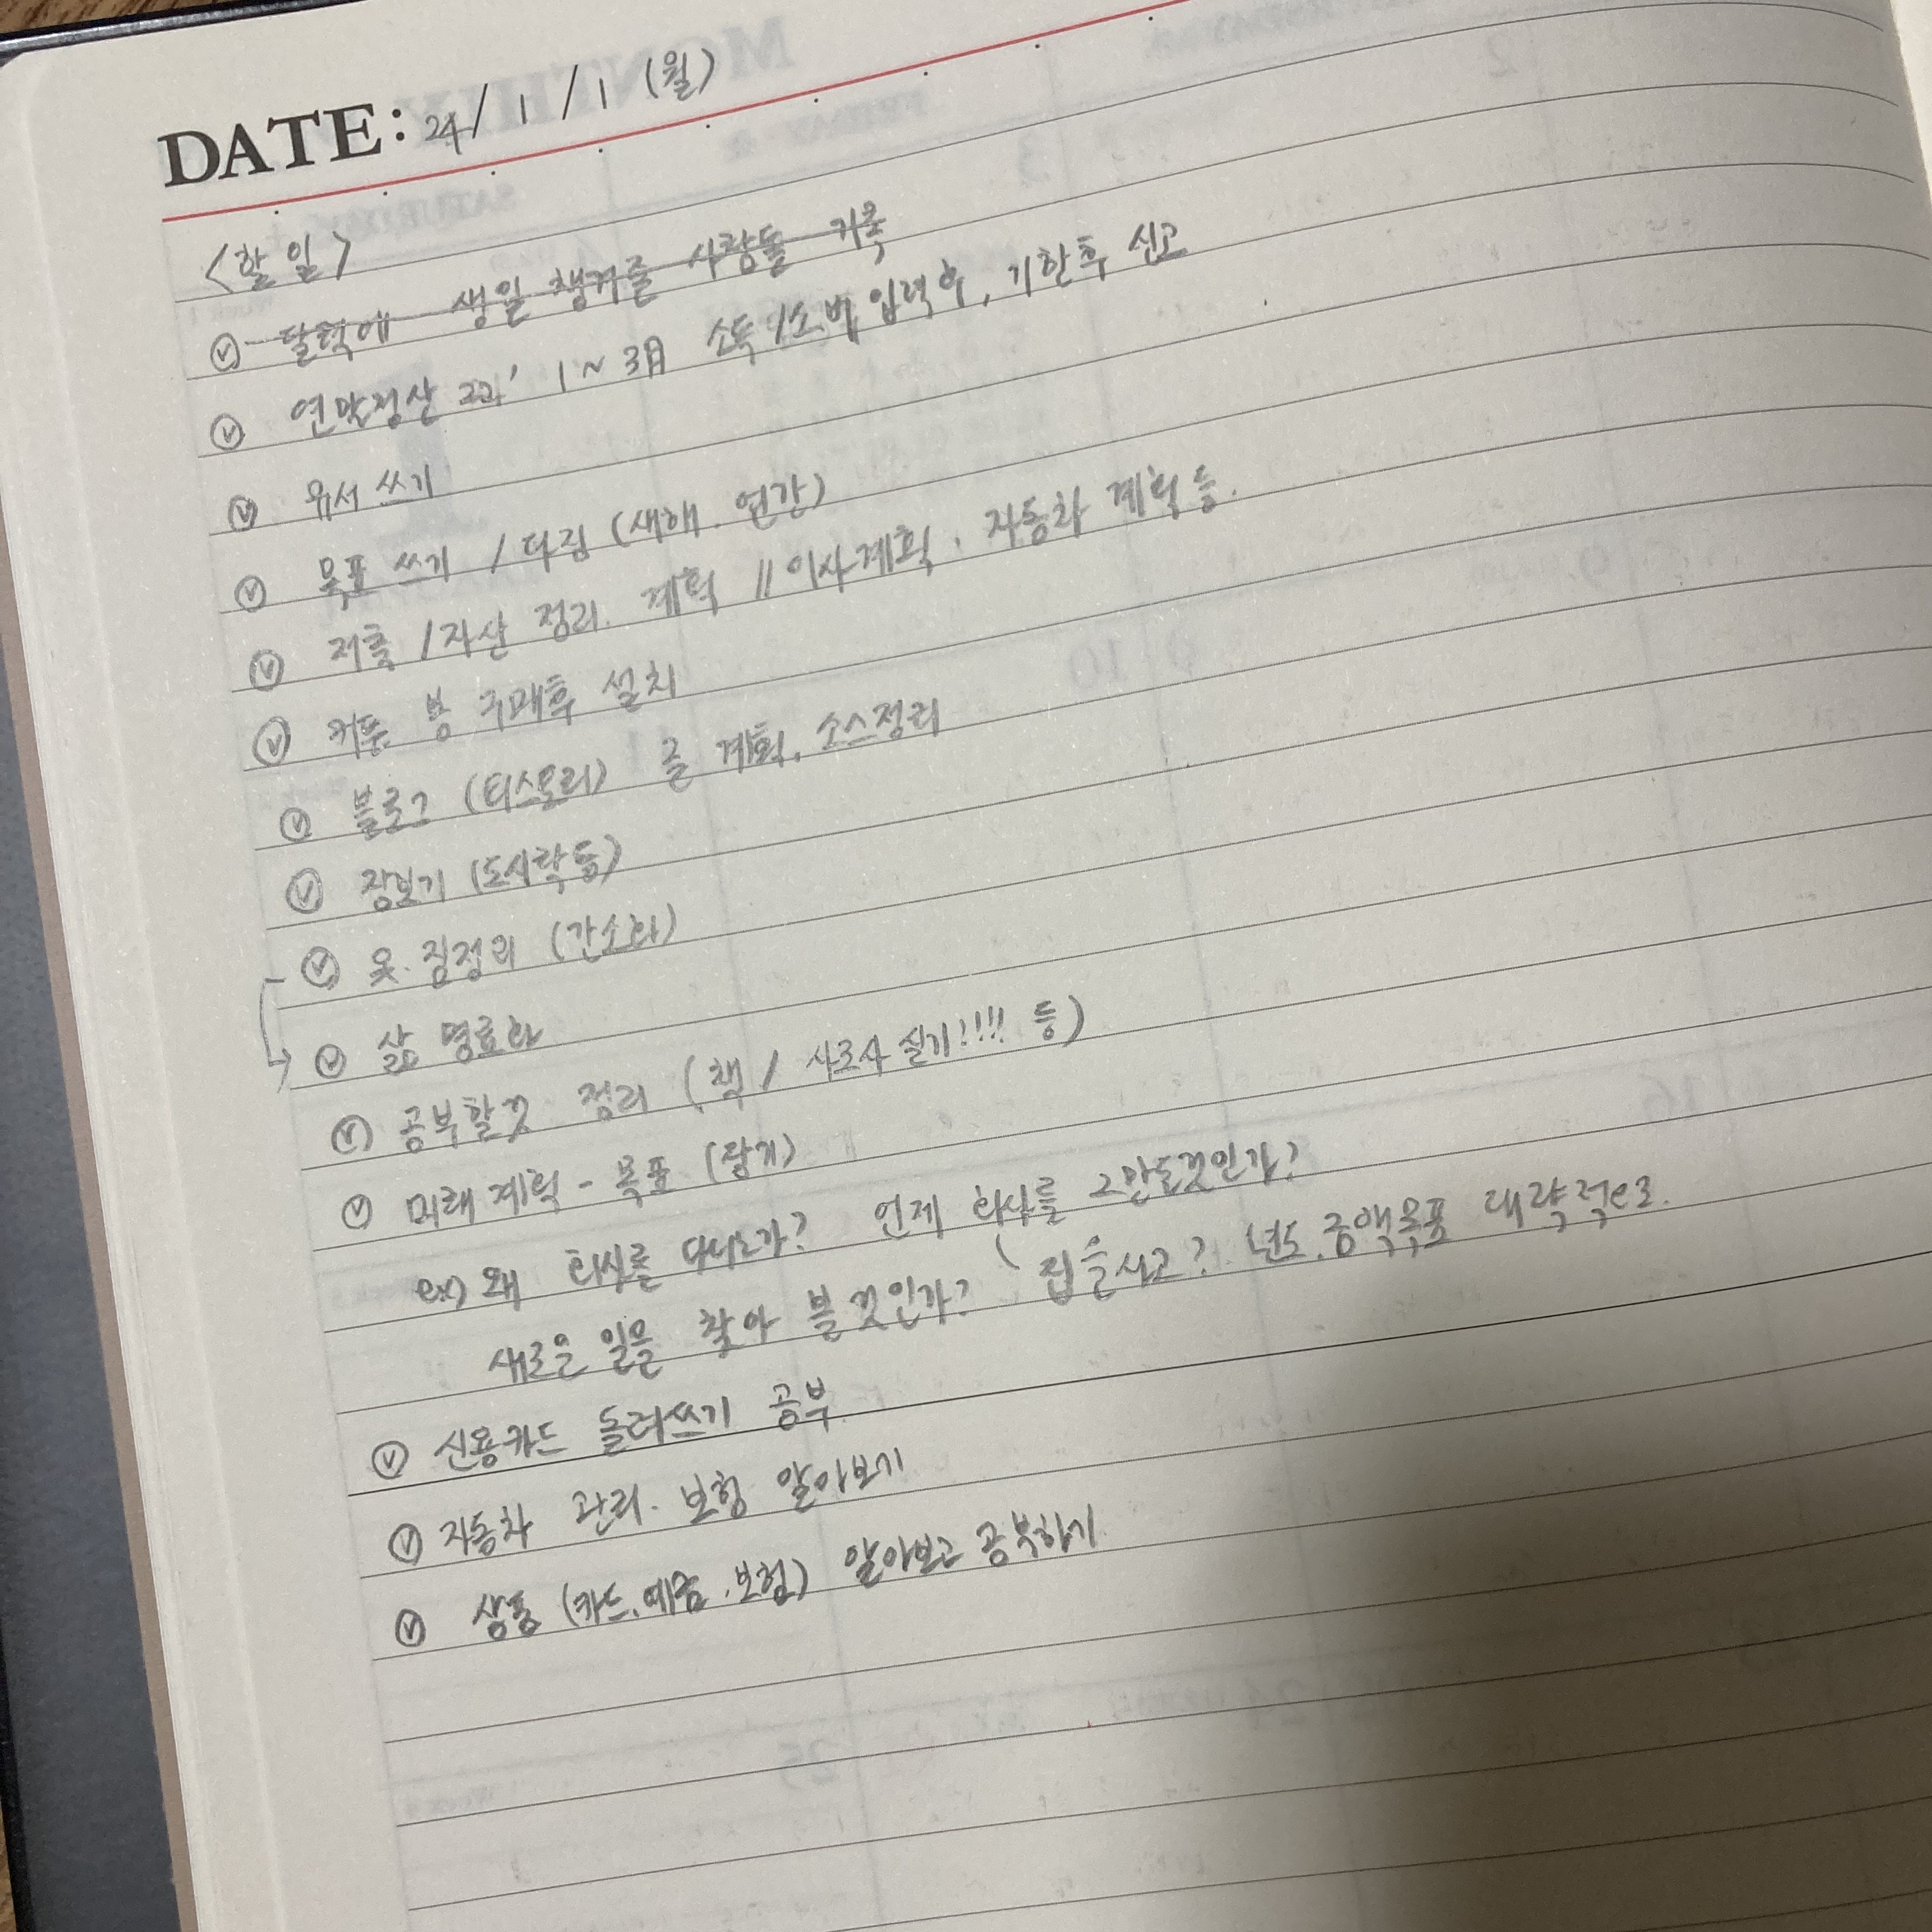 DATE: 24/1/1 (월)
<할 일>
달력에 생일 챙겨줄 사람들 기록
연말정산 22' 1~3月 소득/소비 입력 후, 기한 후 신고
유서 쓰기
목표 쓰기 / 다짐 (새해. 연간)
저축 / 자산 정리. 계획 // 이사계획. 자동차 계획 등.
커튼 봉 구매후 설치
블로그 (티스토리) 글 계획, 소스정리
장보기 (도시락 등)
옷. 짐정리 (간소화)
삶 명료화
공부할것 정리 (책 / 사조사 실기!!!! 등)
미래 계획 - 목표 (장기)
ex) 왜 회사를 다니는가? 언제 회사를 그만둘것인가?
새로운 일을 찾아 볼것인가? 집을 사고? 년도. 금액 목표 대략적으로.
신용카드 돌려쓰기 공부
자동차 관리. 보험 알아보기
상품 (카드, 예금, 보험) 알아보고 공부하기